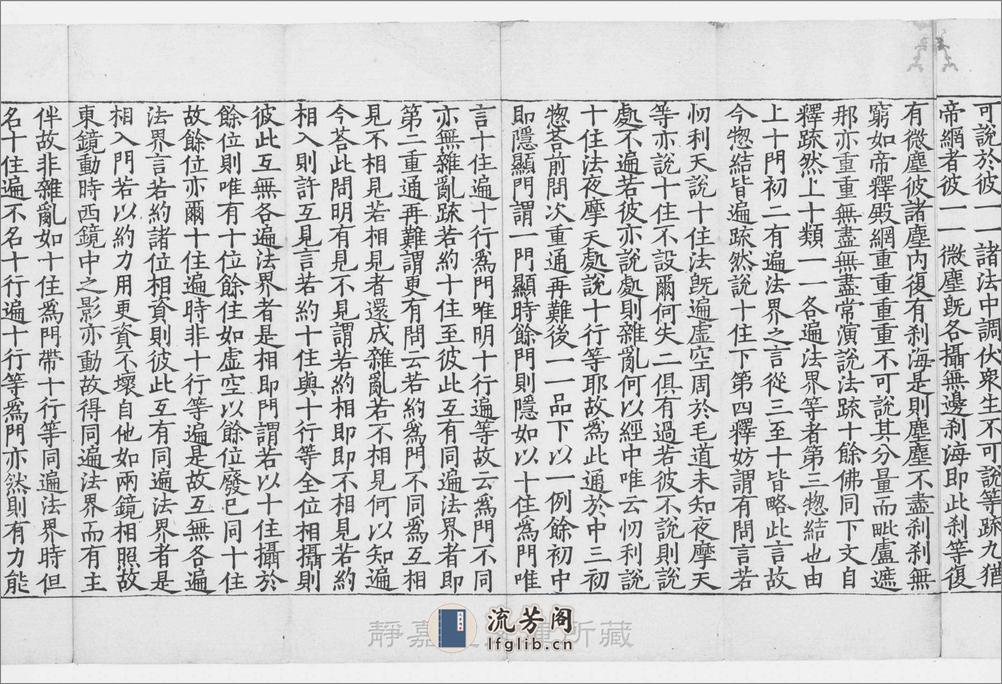 可說於彼一一諸法中調伏衆生不可說等䟽九猶
帝網者彼一一微塵旣各攝無邊刹海即此刹等復
有微塵彼諸塵內復有刹海是則塵塵不盡刹刹無
窮如帝釋殿網重重重重不可說其分量而毗盧遮
那亦重重無盡無盡常演說法䟽十餘佛同下文自
釋䟽然上十類一一各遍法界等者第三惣結也由
上十門初二有遍法界之言從三至十皆略此言故
今惣結皆遍䟽然說十住下第四釋妨謂有問言若
忉利天說十住法旣遍虛空周於毛道未知夜摩天
等亦說十住不設爾何失二俱有過若彼不說則說
處不遍若彼亦說處則雜亂何以經中唯云忉利說
十住法夜摩天處說十行等耶故爲此通於中三初
惣荅前問次重通再難後一一品下以一例餘初中
即隱顯門謂一門顯時餘門則隱如以十住爲門唯
言十住遍十行爲門唯明十行遍等故云爲門不同
亦無雜亂䟽若約十住至彼此互有同遍法界者即
第二重通再難謂更有問云若約爲門不同爲互相
見不相見若相見者還成雜亂若不相見何以知遍
今荅此問明有見不見謂若約相即即不相見若約
相入則許互見言若約十住與十行等全位相攝則
彼此互無各遍法界者是相即門謂若以十住攝於
餘位則唯有十位餘住如虛空以餘位廢已同十住
故餘位亦爾十住遍時非十行等遍是故互無各遍
法界言若約諸位相資則彼此互有同遍法界者是
相入門若以約力用更資不壞自他如兩鏡相照故
東鏡動時西鏡中之影亦動故得同遍法界而有主
伴故非雜亂如十住爲門帶十行等同遍法界時但
名十住遍不名十行遍十行等爲門亦然則有力能
流芳阁
lfglib.cn
靜嘉
所藏